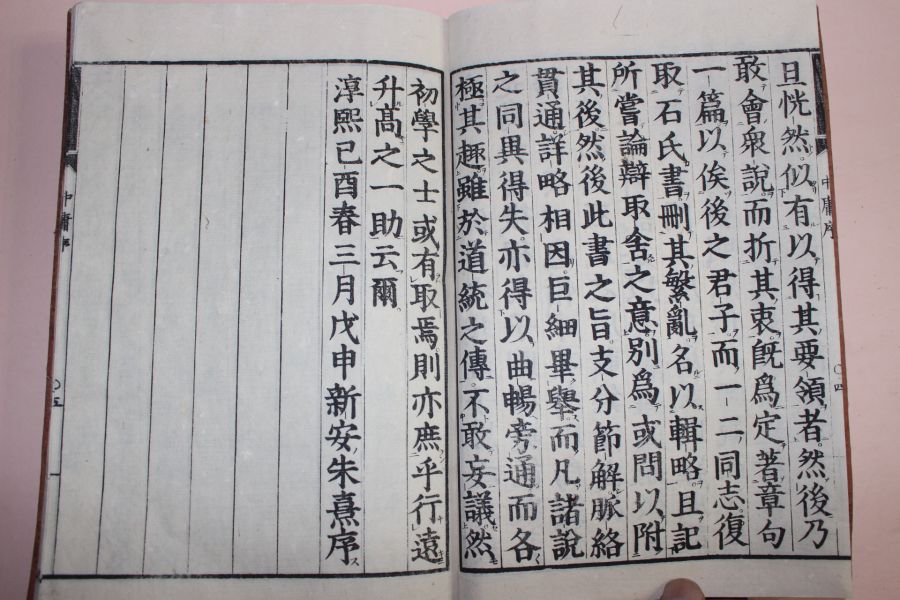 旦恍然似有以得其要領者然後乃
敢會衆說而折其衷既爲定著章句
一篇以俟後之君子而一二同志復
取石氏書刪其繁亂名以輯略且記
所嘗論辯取舍之意別爲或問以附
其後然後此書之旨支分節解脈絡
貫通詳略相因巨細畢擧而凡諸說
之同異得失亦得以曲暢旁通而各
極其趣雖於道統之傳不敢妄議然
初學之士或有取焉則亦庶乎行遠
升高之一助云爾
淳熙己酉春三月戊申新安朱熹序
中庸序
〇四
中庸序
〇五